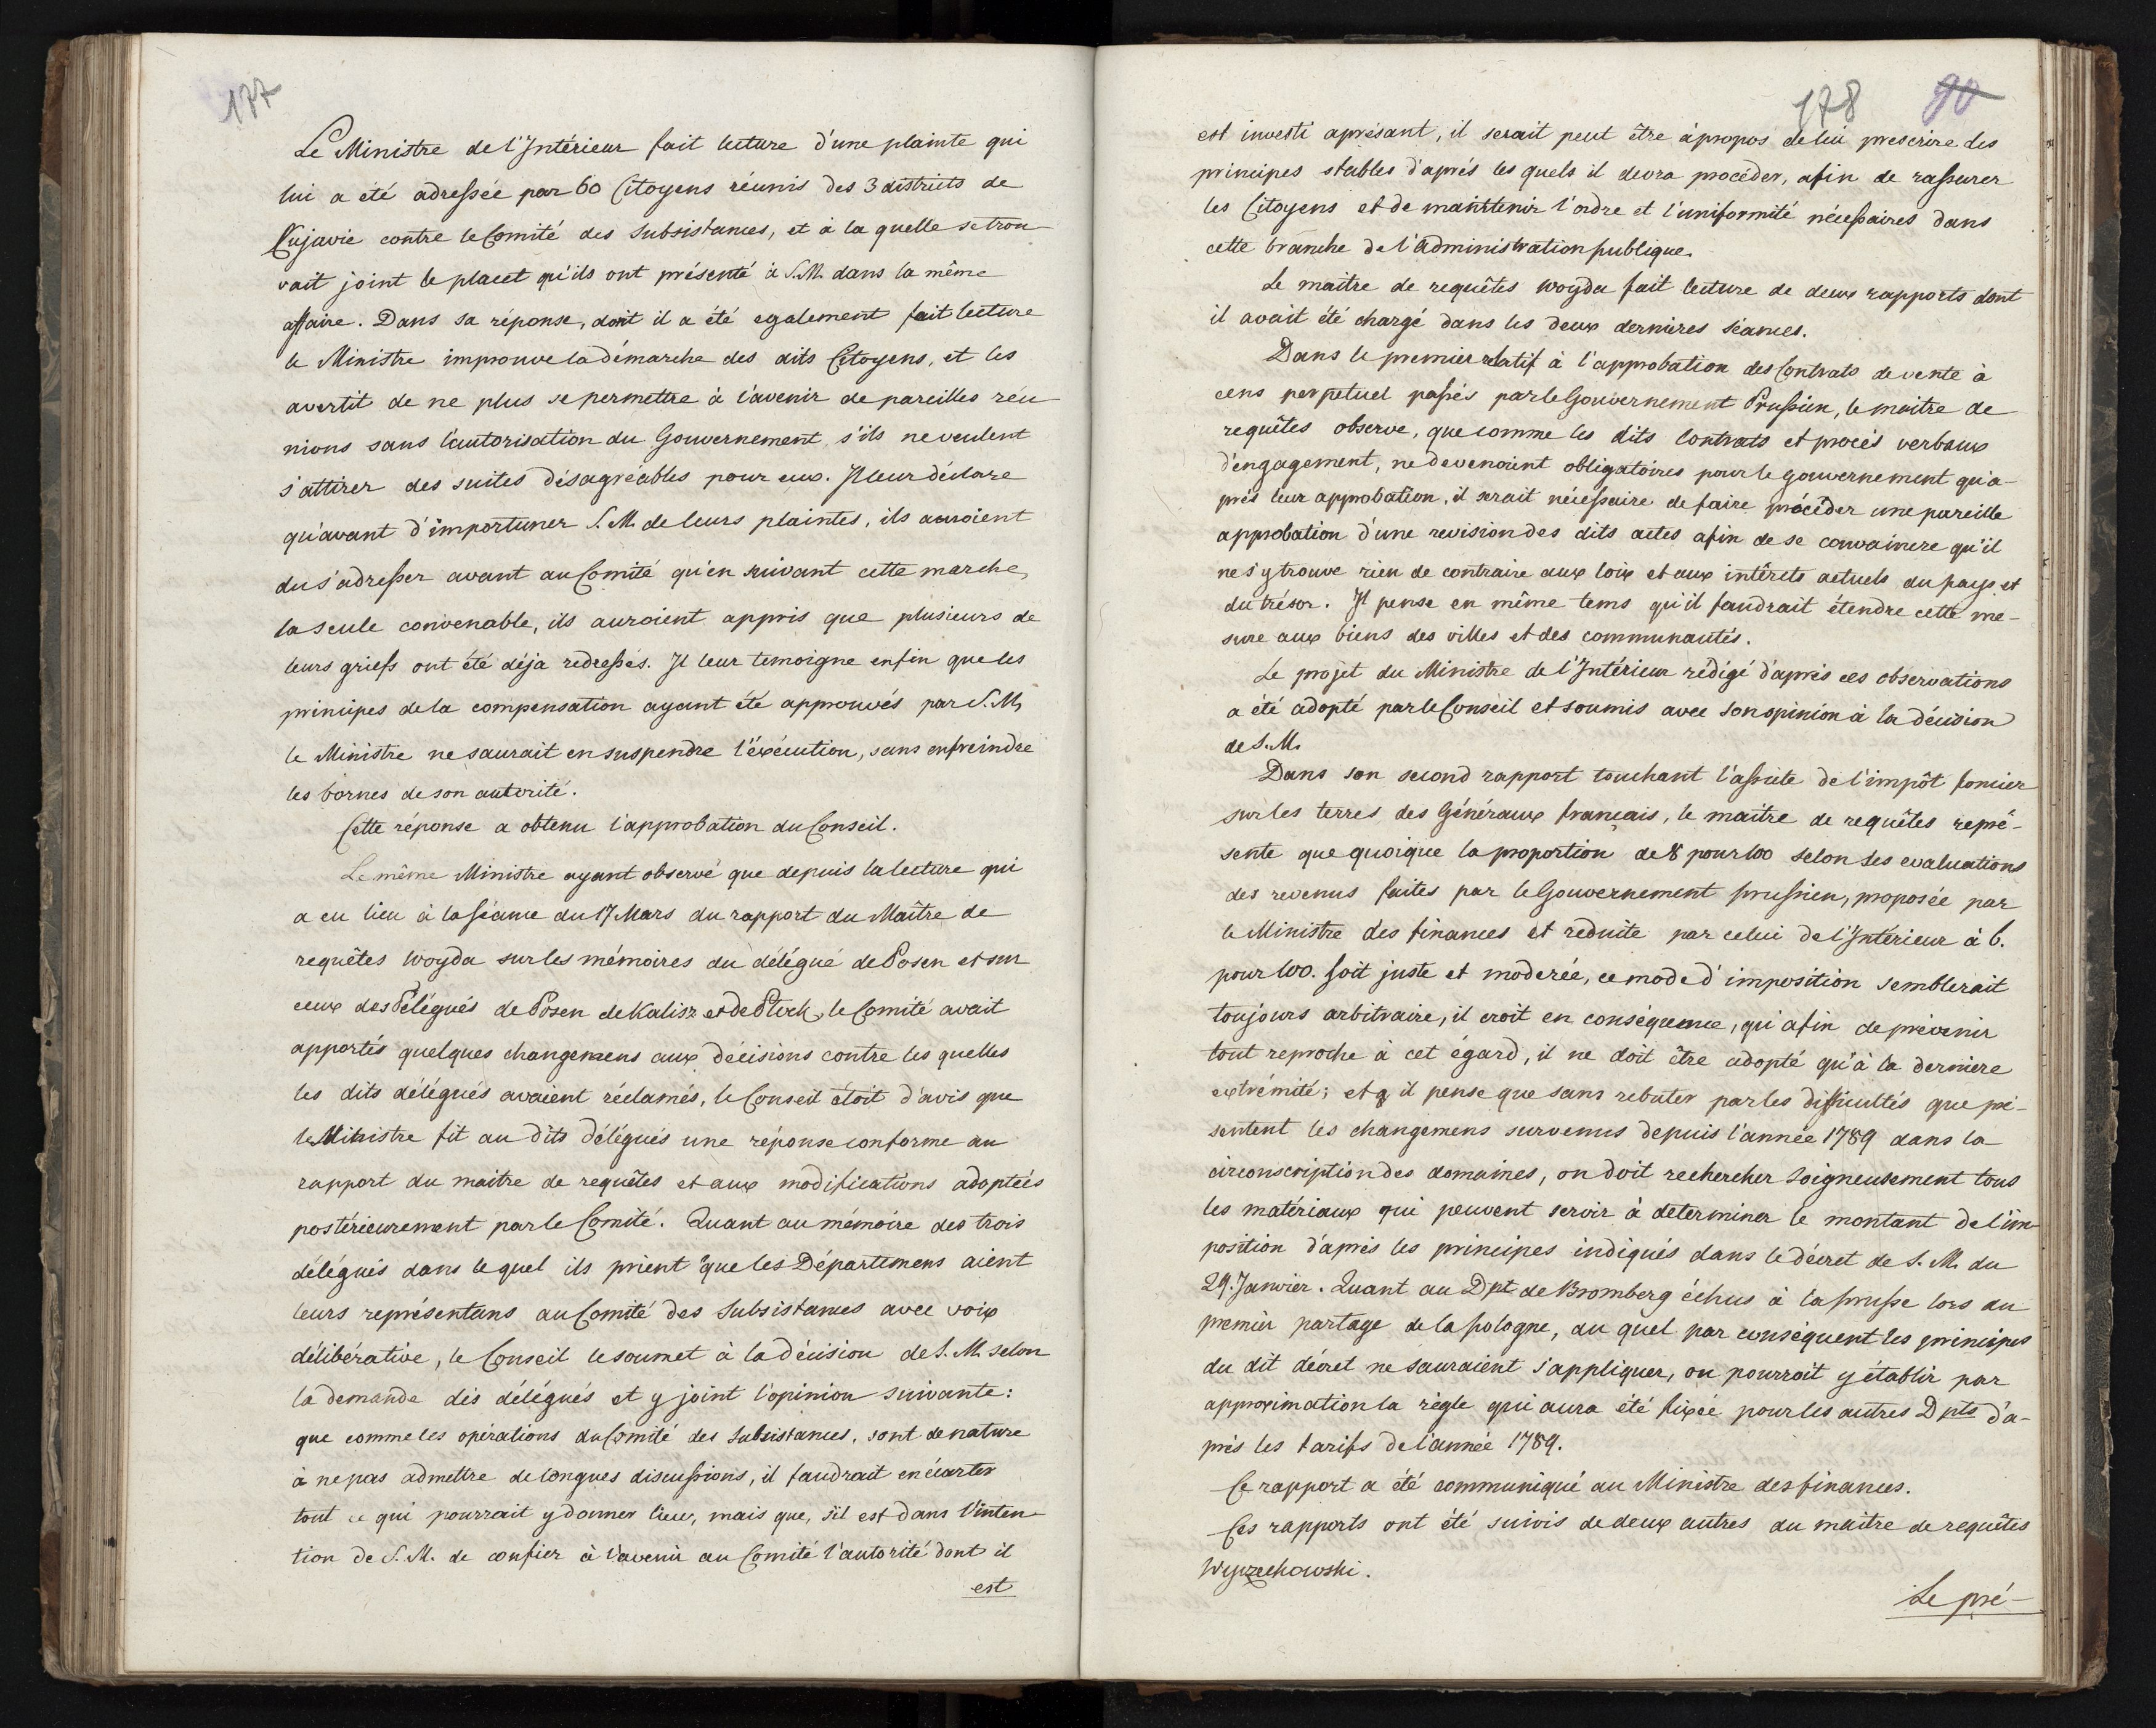 177
Le Ministre de l'Intérieur fait lecture d'une plainte qui
lui a été adressée par 60 Citoyens réunis des 3 districts de
Cujavie contre le Comité des Subsistances, et à la quelle se trou
vait joint le placet qu'ils ont présenté à S.M. dans la même
affaire. Dans sa réponse, dont il a été egalement fait lecture
le Ministre improuve la démarche des dits Citoyens, et les
avertit de ne plus se permettre à l'avenir de pareilles réu
nions sans l'autorisation du Gouvernement s'ils ne veulent
s'attirer des suites désagréables pour eux. Il leur déclare
qu'avant d'importuner S.M. de leurs plaintes, ils auroient
du s'adresser avant au Comité qu'en suivant cette marche,
la seule convenable, ils auroient appris que plusieurs de
leurs griefs ont été déja redressés. Il leur temoigne enfin que les
principes de la compensation ayant été approuvés par S.M,
le Ministre ne saurait en suspendre l'éxécution, sans enfreindre
les bornes de son autorité.
Cette réponse a obtenu l'approbation du Conseil.
Le même Ministre ayant observé que depuis la lecture qui
a eu lieu à la séance du 17 Mars du rapport du Maître de
requêtes Woyda sur les mémoires du délégué de Posen et sur
ceux des Délégués de Posen de Kalisz et de Plock, le Comité avait
apportés quelques changemens aux décisions contre les quelles
les dits délégués avaient réclamés, le Conseil étoit d'avis que
le Ministre fit au dits délégués une réponse conforme au
rapport du maitre de requêtes et aux modifications adoptées
postérieurement par le Comité. Quant au mémoire des trois
délégués dans le quel ils prient que les Départemens aient
leurs représentans au Comité des Subsistances avec voix
délibérative, le Conseil le soumet à la décision de S.M. selon
la demande des délégués et y joint l'opinion suivante:
que comme les opérations du Comité des Subsistances, sont de nature
à ne pas admettre de longues discussions, il faudrait en écarter
tout ce qui pourrait y donner lieu, mais que, s'il est dans l'inten
tion de S.M. de confier à l'avenir au Comité l'autorité dont il
est
178 90
est investi aprésant, il serait peut être àpropos de lui prescrire des
principes stables d'après les quels il devra procéder, afin de rassurer
les Citoyens et de maintenir l'ordre et l'uniformité nécessaires dans
cette branche de l'Administration publique.
Le maitre de requêtes Woyda fait lecture de deux rapports dont
il avait été chargé dans les deux dernières séances.
Dans le premier relatif à l'approbation des Contrats de vente à
cens perpetuel passés par le Gouvernement Prussien, le maitre de
requêtes observe, que comme les dits contrats et procés verbaux
d'engagement, ne devenoient obligatoires pour le gouvernement qu'a-
près leur approbation, il serait nécessaire de faire précéder une pareille
approbation d'une revision des dits actes afin de se convaincre qu'il
ne s'y trouve rien de contraire aux loix et aux intérets actuels du pays et
du trésor. Il pense en même tems qu'il faudrait étendre cette me-
sure aux biens des villes et des communautés.
Le projet du Ministre de l'Intérieur rédigé d'après ces observations
a été adopté par le Conseil et soumis avec son opinion à la décision
de S.M.
Dans son second rapport touchant l'assiete de l'impôt foncier
sur les terres des Généraux français, le maitre de requêtes repré-
sente que quoique la proportion de 8 pour 100 selon les evaluations
des revenus faites par le Gouvernement prussien, proposée par
le Ministre des finances et reduite par celui de l'Intérieur à 6.
pour 100. soit juste et moderée, ce mode d'imposition semblerait
toujours arbitraire, il croit en conséquence, qu'afin de prévenir
tout reproche à cet égard, il ne doit être adopté qu'à la derniere
extrémité; et il pense que sans rebuter par les difficultés que pré-
sentent les changemens survenus depuis l'année 1789 dans la
circonscription des domaines, on doit rechercher soigneusement tous
les matériaux qui peuvent servir à determiner le montant de l'im
position d'après les principes indiqués dans le décret de S.M. du
29. Janvier. Quant au Dpt de Bromberg échus à la prusse lors du
premier partage de la pologne, au quel par conséquent les principes
du dit décret ne sauraient s'appliquer, on pourroit y établir par
approximation la règle qui aura été fixée pour les autres Dpts d'a-
près les tarifs de l'année 1789.
Ce rapport a été communiqué au Ministre des finances.
Ces rapports ont été suivis de deux autres du maitre de requêtes
Wyczechowski.
Le pré-